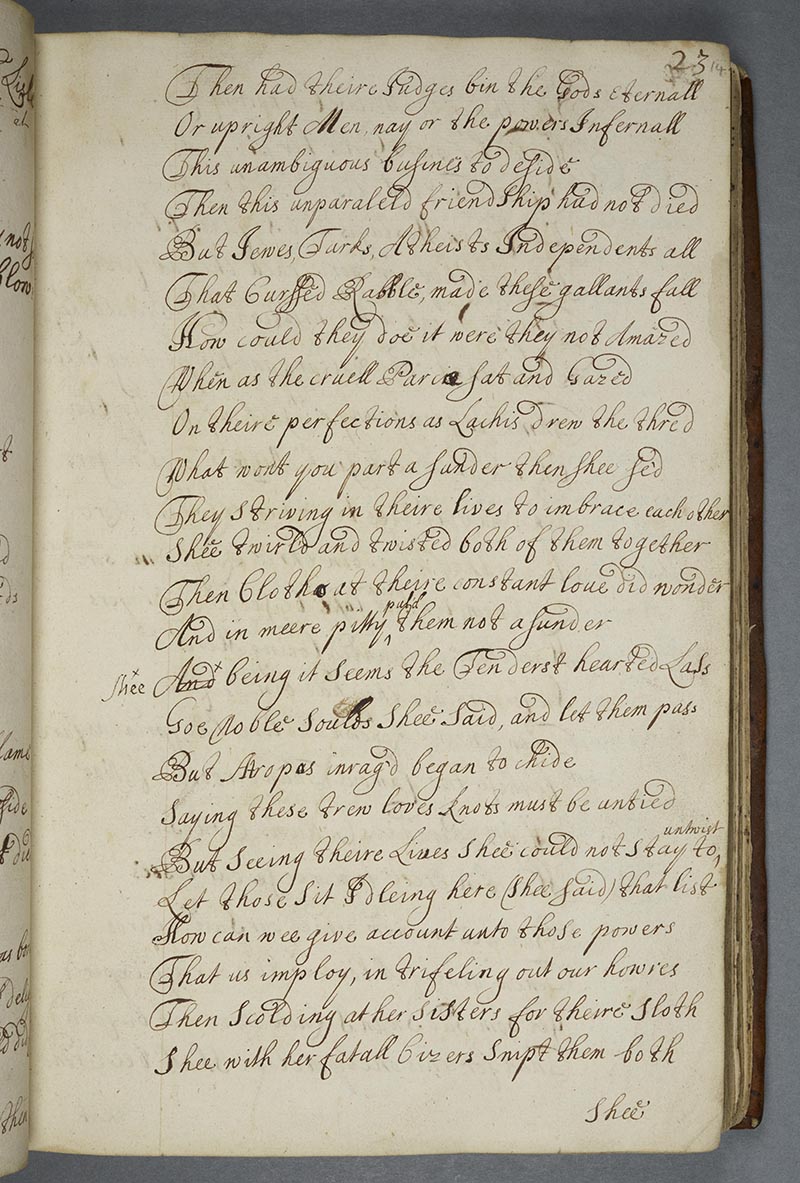 23
14
Then had theire Judges bin the Gods Eternall
Or upright Men, nay or the powers Infernall
This unambiguous busines to deside
Then this unparaleld friendShip had not died
But Jewes, Turks, Atheists Independents all
That Curssed Rabble, made these gallants fall
How could they doe it were they not Amazed
When as the cruell Parcae sat and Gazed
On theire perfections as Lachis drew the thred
What wont you part a sunder then shee se'd
They striving in theire lives to imbrace each other
Shee twirld and twisted both of them together
Then Clotho at theire constant love did wonder
puld
And in meere pitty ^ them not a sunder
Shee And being it seems the Tenderst hearted Lass
Goe Noble Soules Shee Said, and let them pass
But Atropos inrag'd began to chide
Saying these trew loves knots must be untied
untwist
But Seeing theire Lives Shee could not stay to,
Let those Sit Idleing here (Shee Said) that list
How can wee give account unto those powers
That us imploy, in trifeling out our howres
Then Scolding at her Sisters for theire Sloth
Shee with her fatall Cizers Snipt them both
Shee